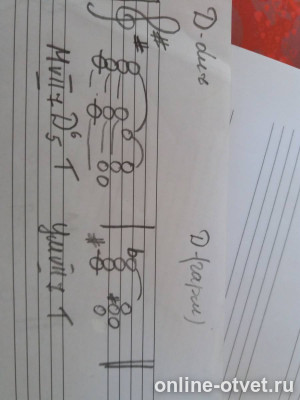 D-dur
D-(гарм)
МVII7 D6/5 T
УмVII7 T
online-otvet.ru